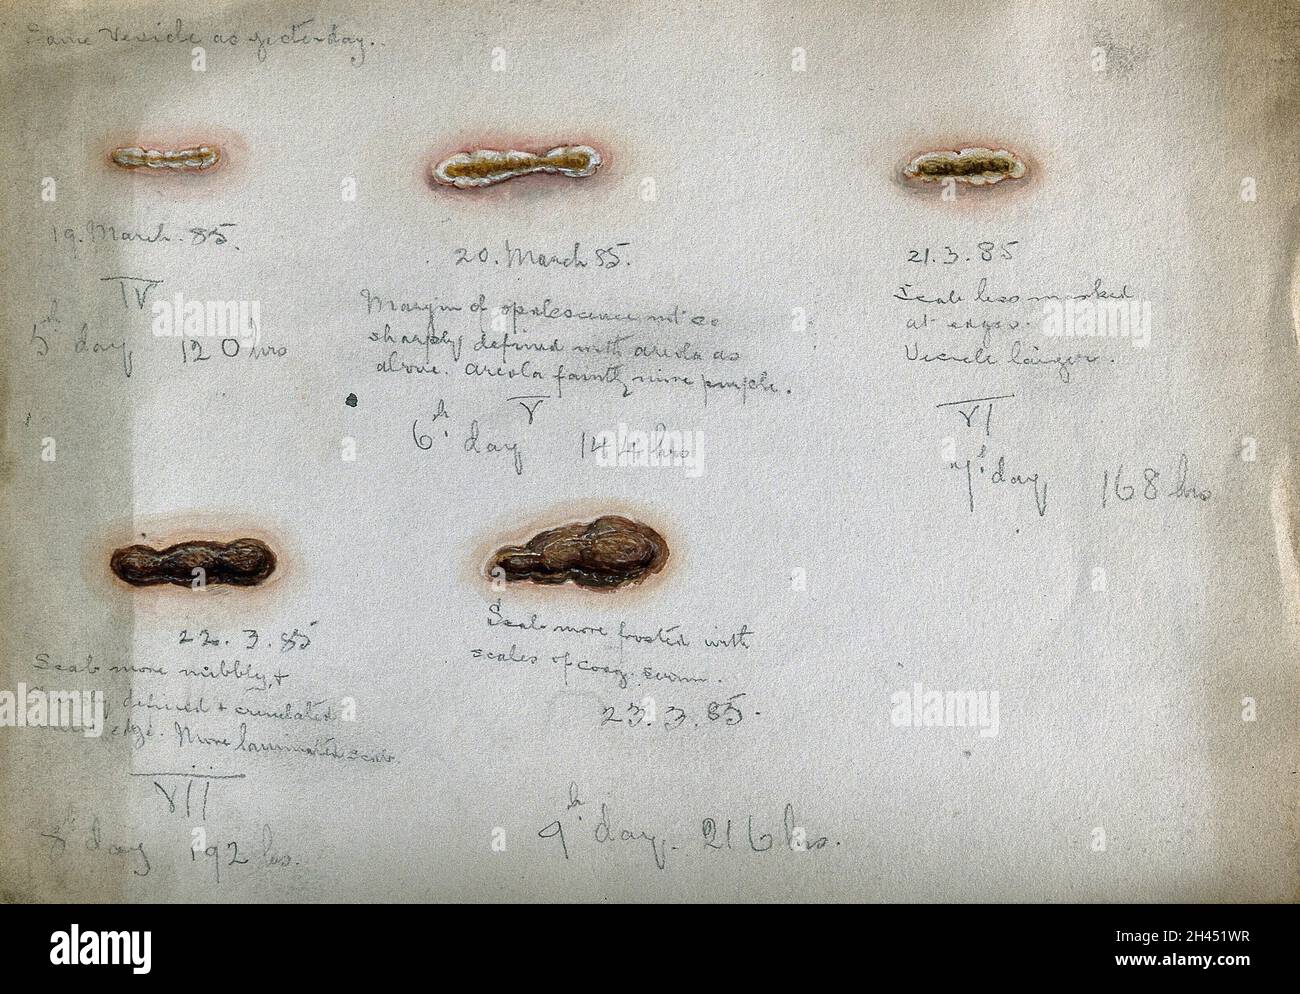 Same Vesicle as yesterday.
19. March. 85.
IV
5th day 120 hrs
20. March 85.
Margin of opalescence not so
sharply defined with areola as
above. Areola faintly more purple.
V
6th day 144 hrs
21.3.85
Scab less marked
at edges.
Vesicle larger.
VI
7th day 168 hrs
22.3.85
Scab more nibbly, +
defined + crenulated
edge. More laminated scab.
VII
8th day 192 hrs.
Scab more frosted with
scales of coag. serum.
23.3.85.
9th day. 216 hrs.
alamy
Image ID: 2H451WR
www.alamy.com